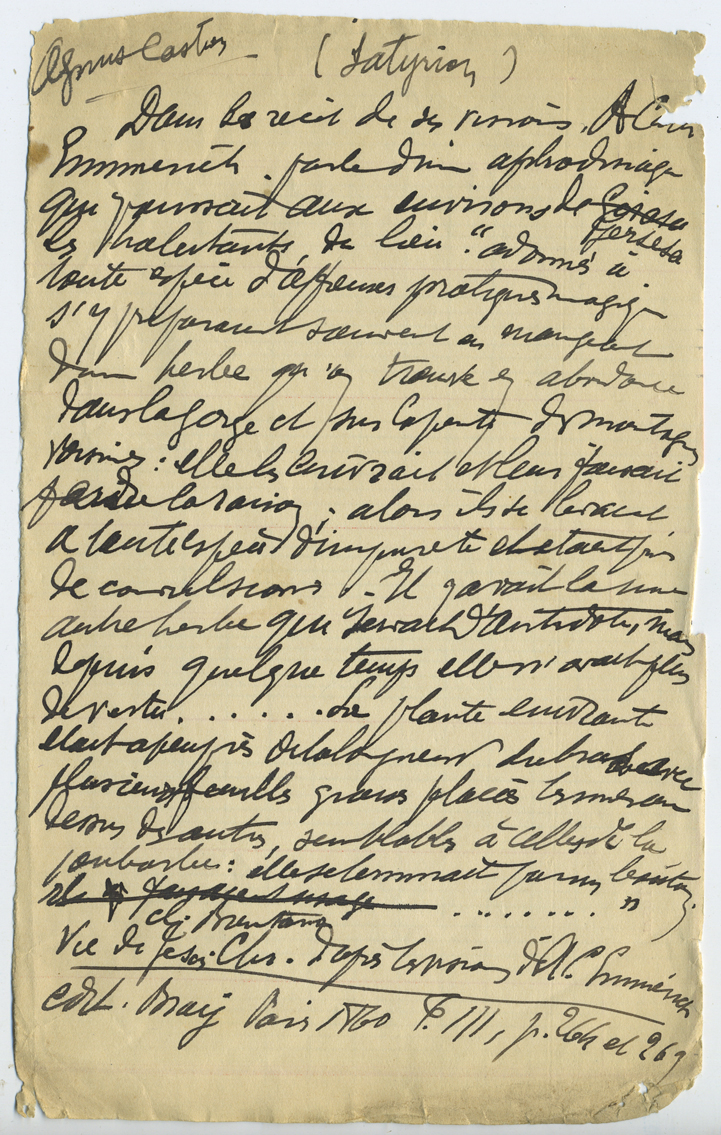 Agnus Castus (Satyrion)
Dans le récit de ses visions, A. Cath
Emmerich parle d'un aphrodisiaque
qui poussait aux environs de Gersesa
les habitants du lieu "adonnés à
toute espèce d'affreuses pratiques magiques
s'y préparaient souvent en mangeant
d'une herbe qu'on trouve en abondance
dans la gorge et sur la pente des montagnes
voisines : elle les enivrait et leur faisait
perdre la raison ; alors ils se livraient
à toute espèce d'impureté et étaient pris
de convulsions. - Il y avait là une
autre herbe qui servait d'antidote, mais
depuis quelque temps elle n'avait plus
de vertu....... La plante enivrante
était à peu près de la longueur du bras avec
plusieurs feuilles grasses placées les unes au
dessus des autres, semblables à celles de la
joubarbe : elle se terminait par un bouton,
........ "
Cl. Brentano
Vie de Jésus Chr. d'après les visions d'A.C. Emmerich
edit. Bray Paris 1860 T. III, p. 264 et 269